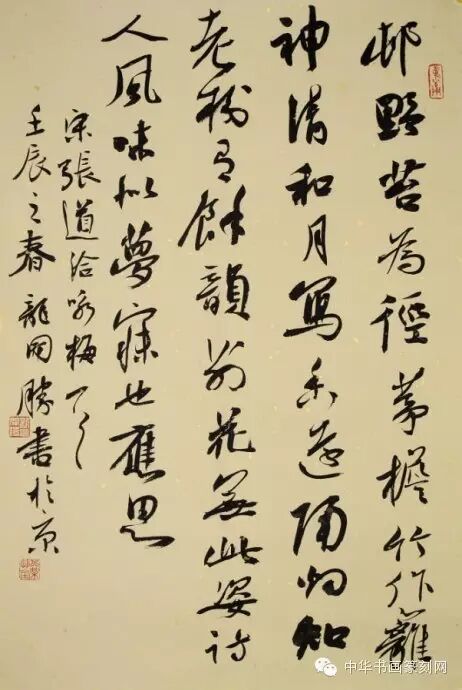 邨野苔為徑茅檐竹作籬
神清和月寫香遠隔煙知
老樹有餘韻別花無此姿詩
人風味似夢寐也應思
宋張道洽咏梅一首
壬辰之春龍開勝書於京
中华书画篆刻网